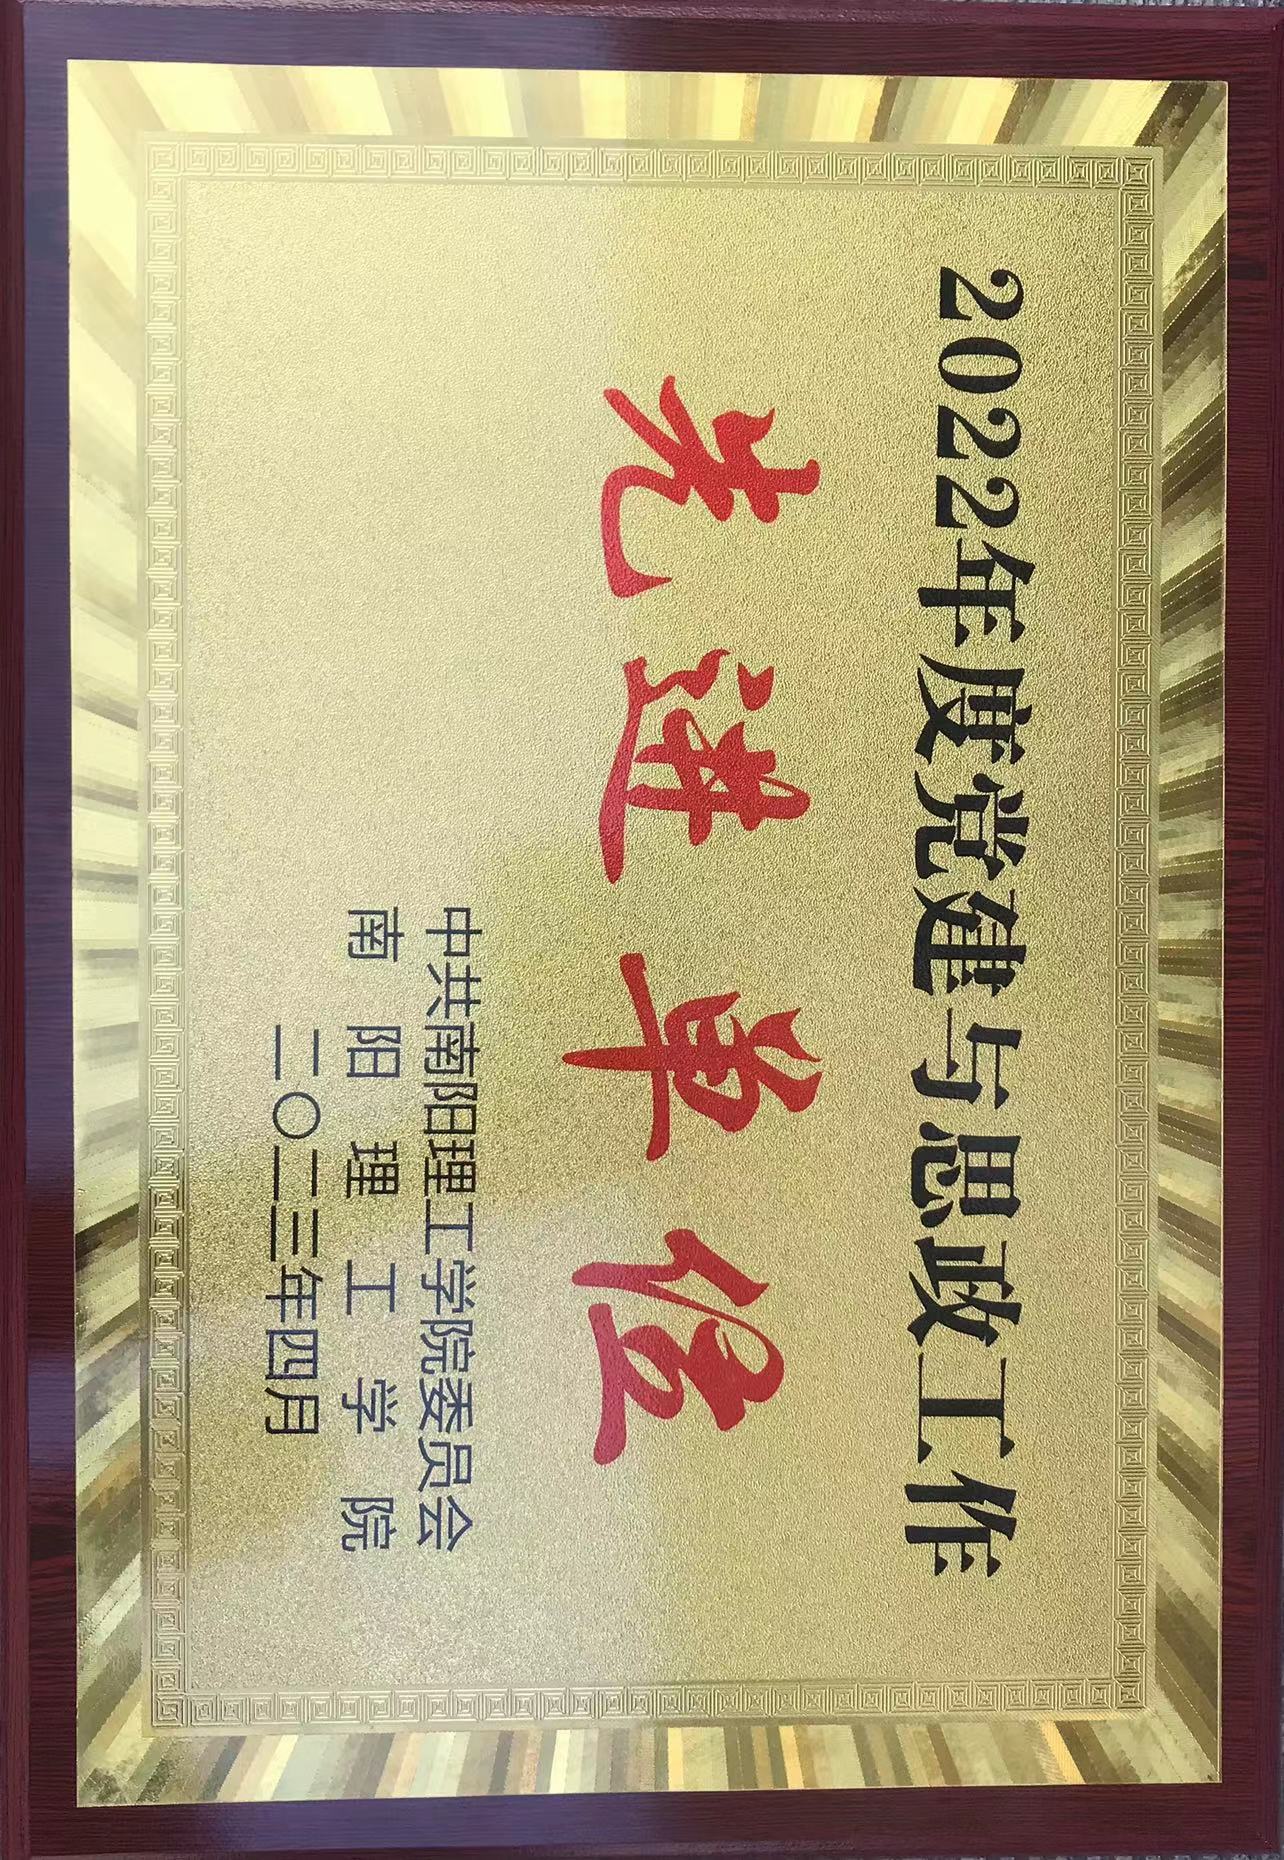 2022年度党建与思政工作
先进单位
中共南阳理工学院委员会
南阳理工学院
二〇二三年四月